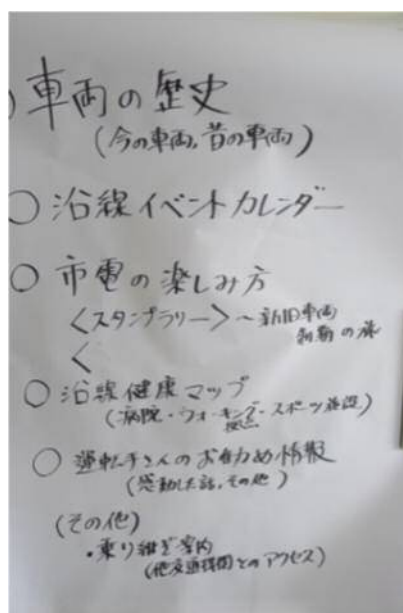 ○車両の歴史
(今の車両,昔の車両)
○沿線イベントカレンダー
○市電の楽しみ方
<スタンプラリー>~新旧車両
の旅
<
○沿線健康マップ
(病院・ウォーキング・スポーツ施設)
拠点
○運転手さんのお勧め情報
(感動した話,その他)
(その他)
・乗り継ぎ案内
(他交通機関とのアクセス)